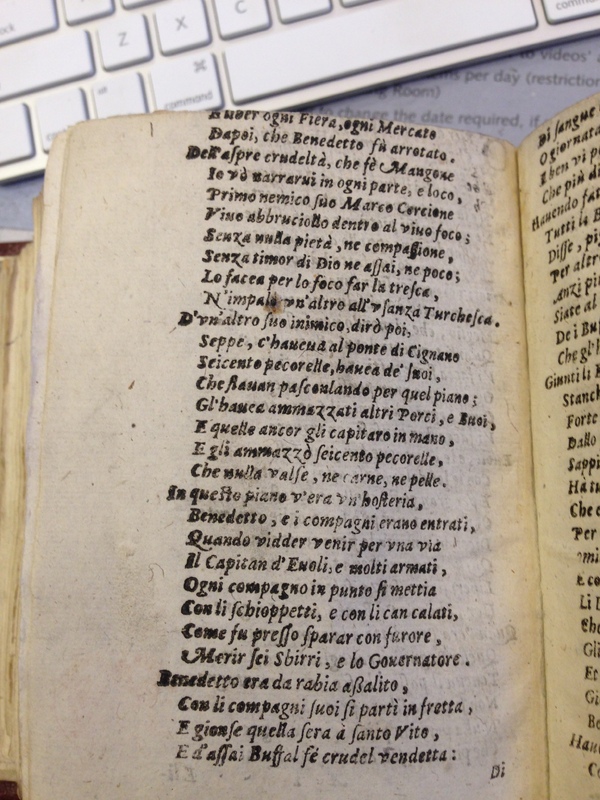 Z
X
C
command
command
to videos'
per day (restriction
Room)
to change the date required, if
ogni Fiera, ogni Mercato
Dapoi, che Benedetto fù arrotato.
Dell'aspre crudeltà, che fè Mangone
Io vò narrarui in ogni parte, e loco,
Primo nemico suo Marco Cercione
Viuo abbruciollo dentro al viuo foco;
Senza nulla pietà, ne compassione,
Senza timor di Dio ne assai, ne poco;
Lo facea per lo foco far la tresca,
N'impalò vn'altro all'vsanza Turchesca.
D'vn'altro suo inimico, dirò poi,
Seppe, c'haueuà al ponte di Cignano
Seicento pecorelle, hauea de' suoi,
Che stauan pascoulando per quel piano;
Gl'hauea ammazzati altri Porci, e Buoi,
E quelle ancor gli capitaro in mano,
E gli ammazzò seicento pecorelle,
Che nulla valse, ne carne, ne pelle.
In questo piano v'era vn'hosteria,
Benedetto, e i compagni erano entrati,
Quando vidder venir per vna via
Il Capitan d'Euoli, e molti armati,
Ogni compagno in punto si mettia
Con li schioppetti, e con li can calati,
Come fu presso sparar con furore,
Merir sei Sbirri, e lo Gouernatore.
Benedetto era da rabia assalito,
Con li compagni suoi si partì in fretta,
E gionse quella sera à santo Vito,
E d'assai Buffal fé crudel vendetta:
Di
Di sangue
O giornata
E ben vi p
Che più di
Hauendo fat
Tutti li B
Disse, pi
Per altro
Anzi più
Siate al
De i Buf
Che gl'h
Giunti li
Stanch
Forte
Dallo
Sappi
Hà tu
Che c
Per
E co
Li
Che
Gli
Ec
Gi
Be
Hau
Co